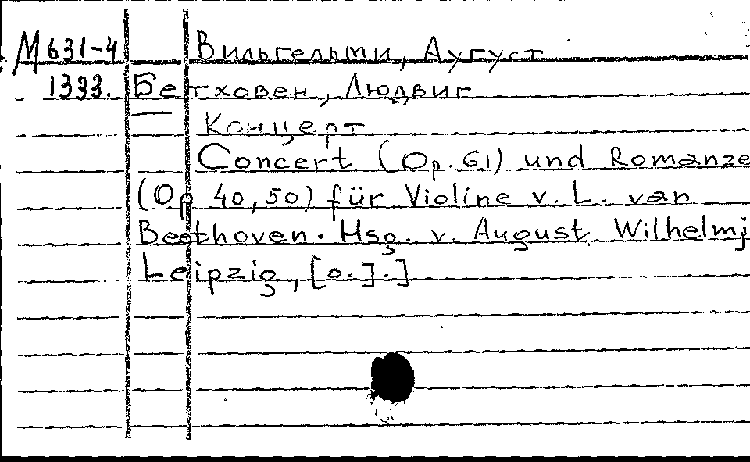 М631-4 Вильгельми, Аугуст
1393. Бетховен, Людвиг
Концерт
Concert (Op. 61) und Romanze
(Op 40,50) für Violine v. L. van
Beethoven. Hsg. v. August Wilhelmj
Leipzig, [o.J.]